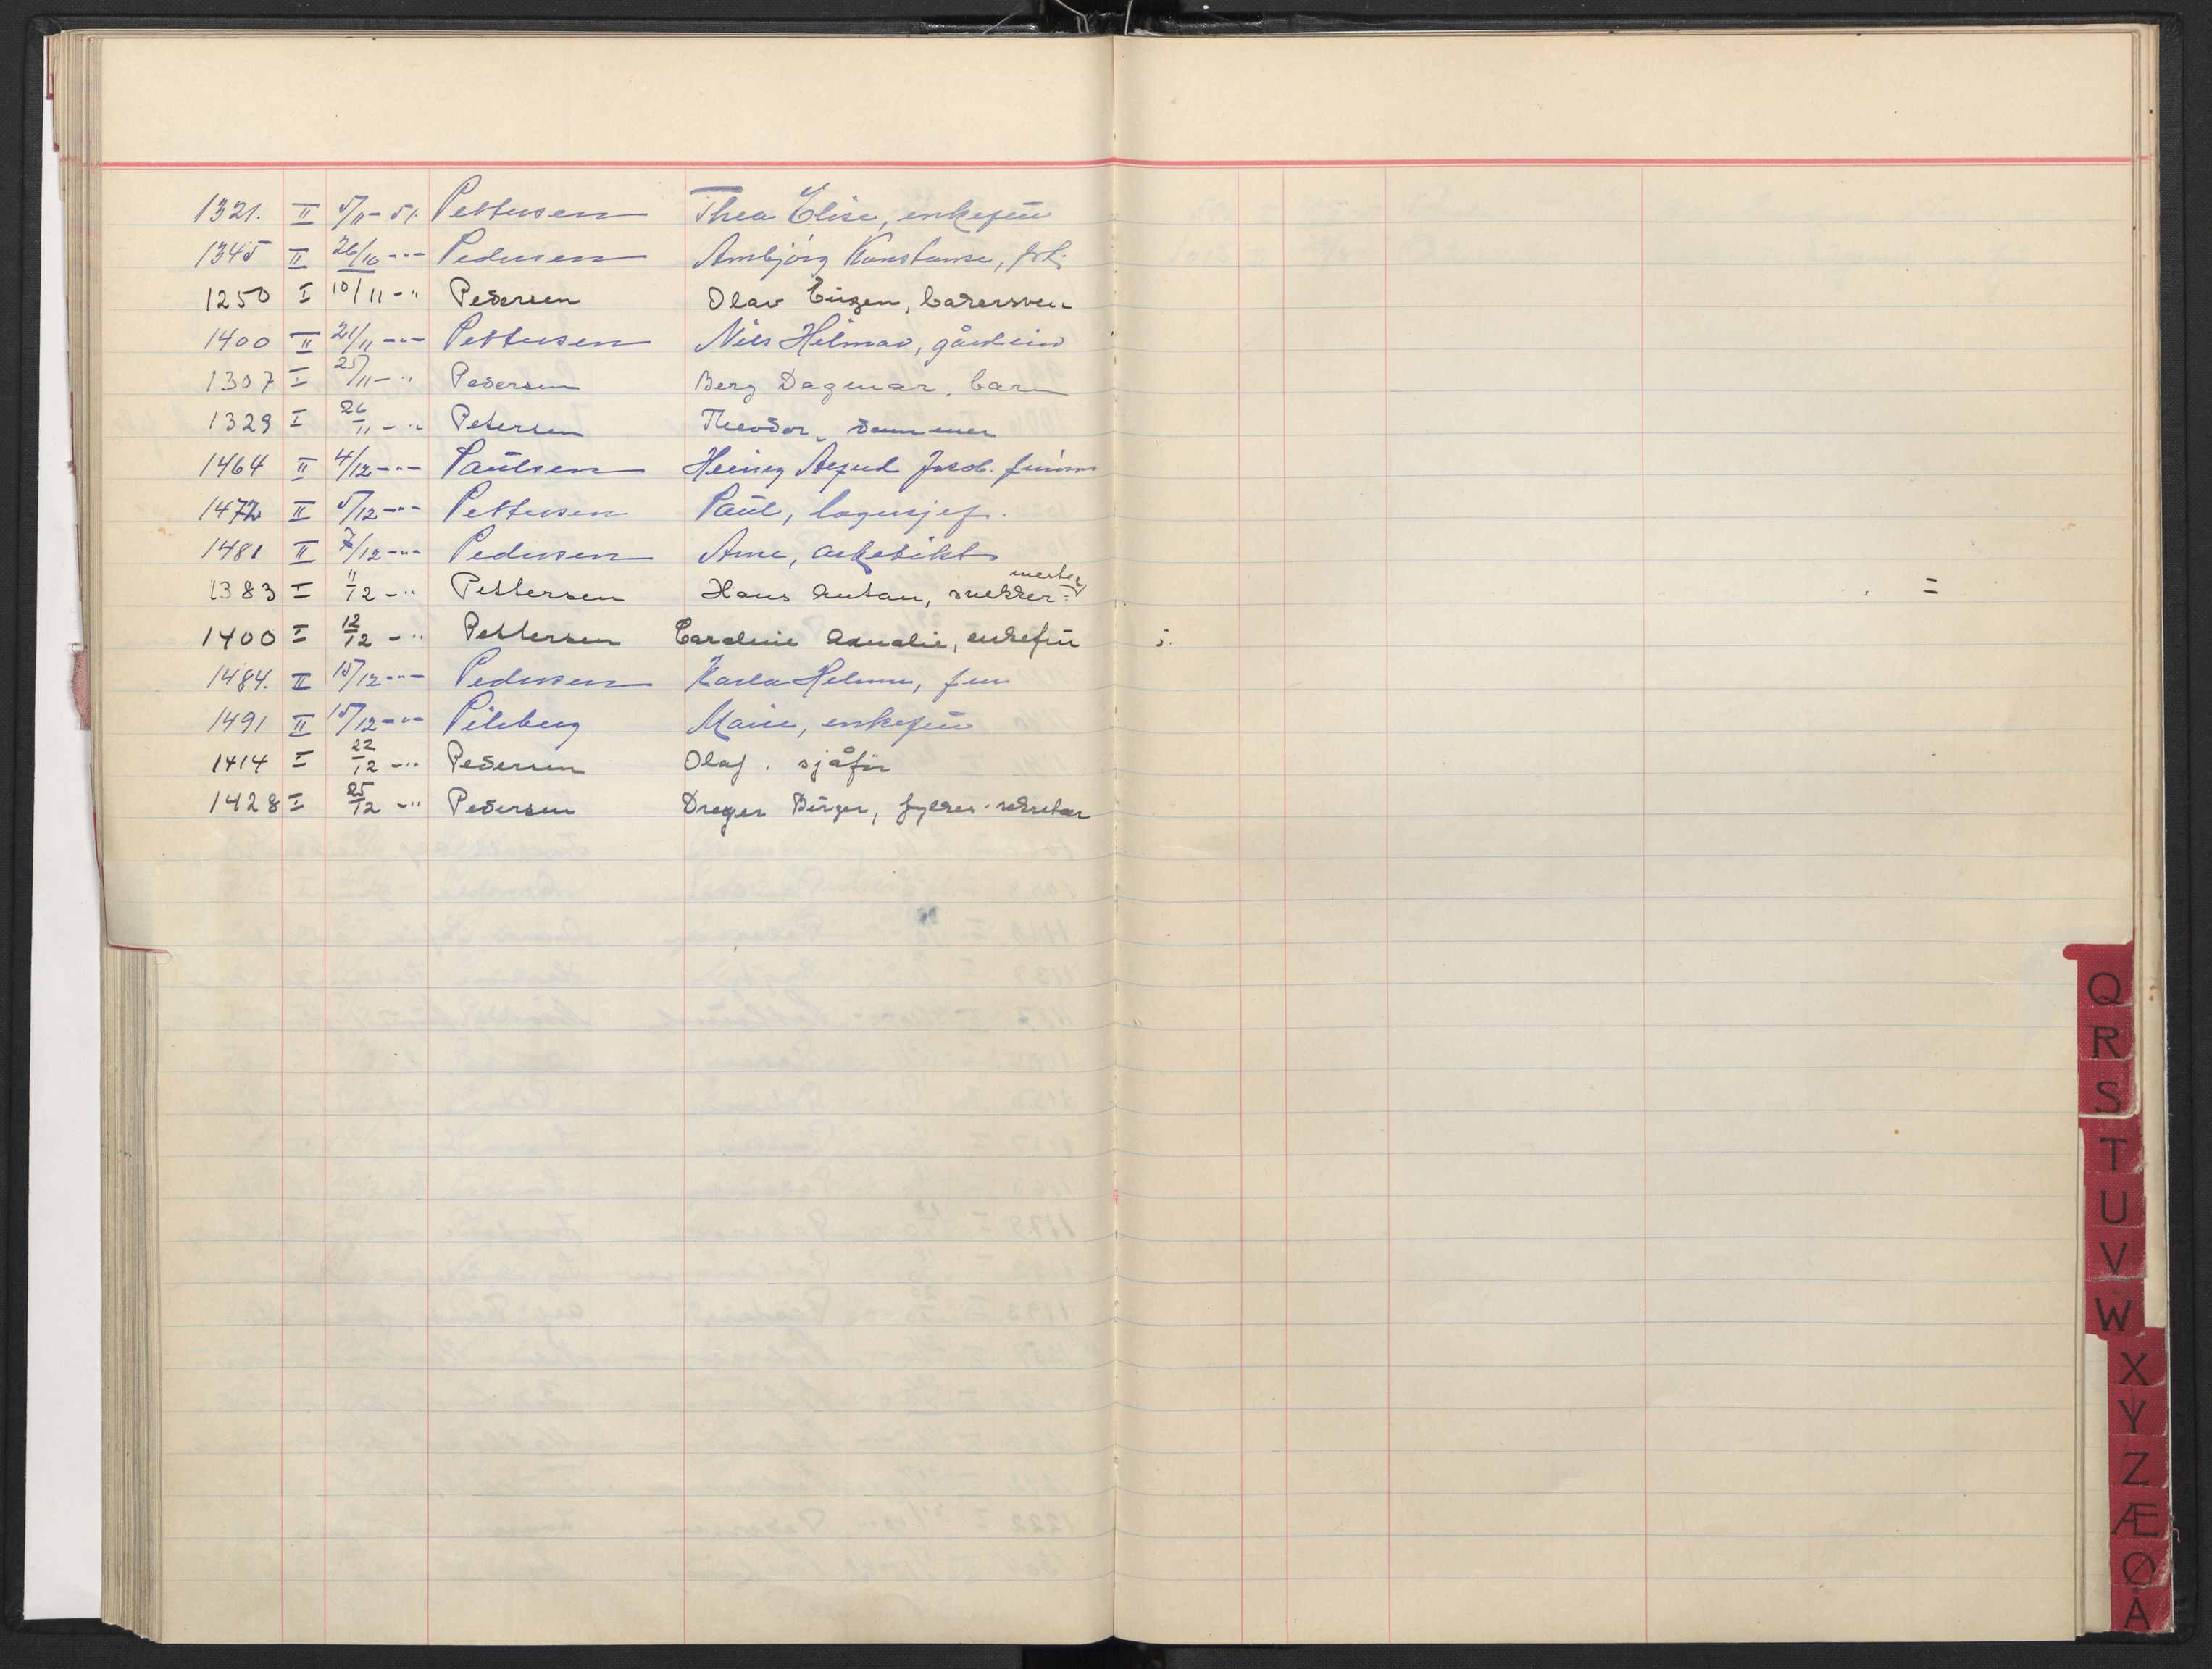 1321. II 5/11 - 51. Pettersen Thea Elise, enkefru
1345 II 26/10 -"- Pedersen Arnbjørg Konstanse, frk.
1250 I 10/11 - " Pedersen Olav Eugen, bakersven
1400 II 21/11 -"- Pettersen Nils Hilmar,
1307 I 25/11 - " Pedersen Berg Dagmar, barn
1329 I 26/11 - " Petersen Theodor,
1464 II 4/12 -"- Paulsen Henry Jacob.
1472 II 5/12 -"- Pettersen Paul, lagersjef.
1481 II 7/12 -"- Pedersen Arne, arkitekt
1383 I 11/12 - " Pettersen Hans Anton, snekker= mester
1400 I 12/12 - " Pettersen Caroline Amalie, enkefru
1484. II 15/12 -"- Pedersen Karla Helene, fru
1491 II 15/12 -"- Pilsberg Marie, enkefru
1414 I 22/12 - " Pedersen Olaf. sjåfør
1428 I 25/12 - " Pedersen Dreyer Birger, fylkes-sekretær
Q
R
S
T
U
V
W
X
Y
Z
Æ
Ø
Å